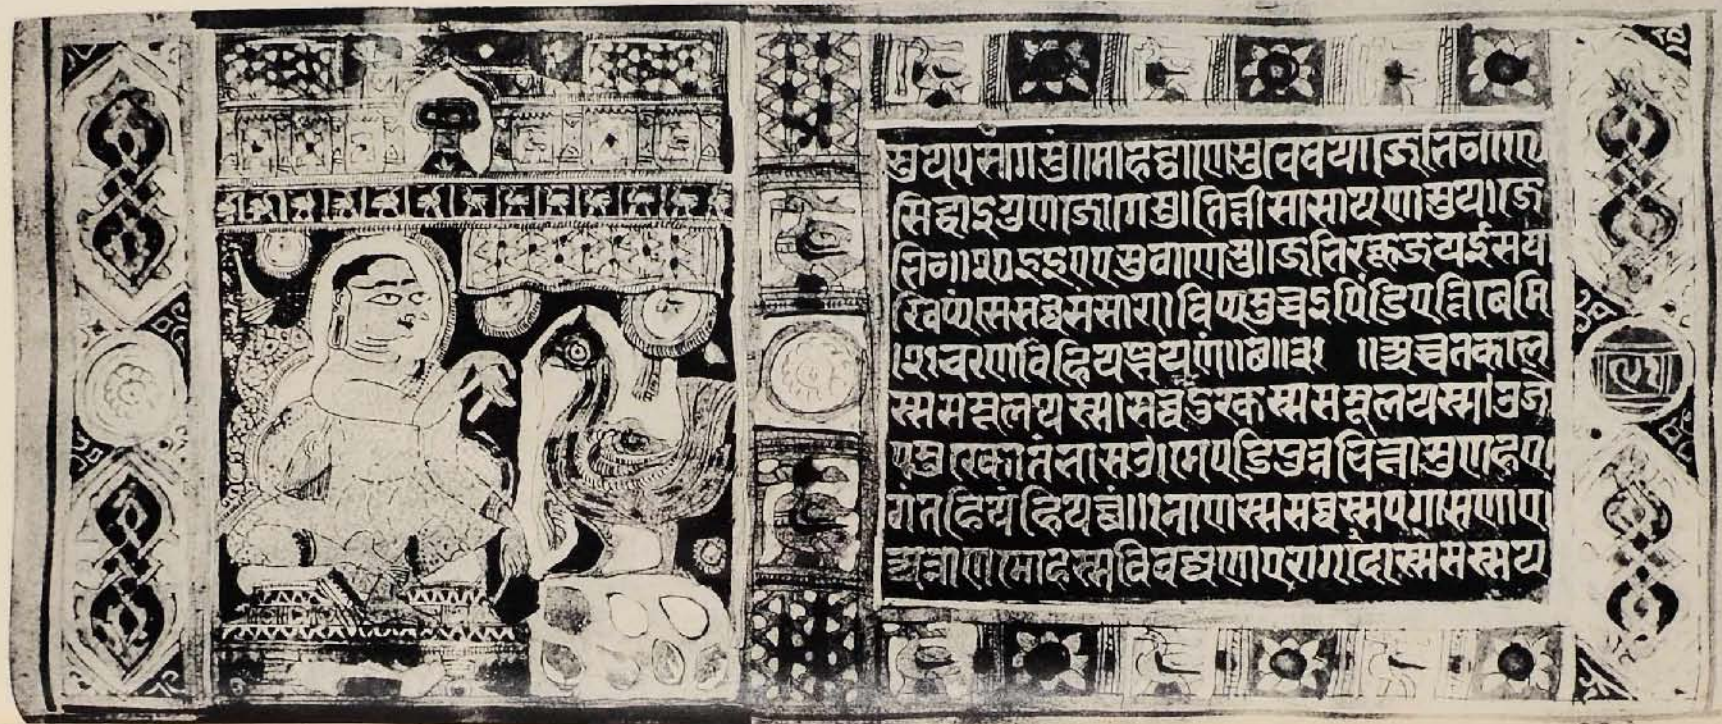 सुयपसंगेसु॥मोहट्ठाणेसुचेवय।जेभि०॥१९
सिद्धाइगुणजोगेसु।तित्तीसासायणासुय।जे
भि०॥२०इइएएसुठाणेसु।जेभिरकूजयईसया
खिप्पंसेसव्वसंसारा।विप्पमुच्चइपंडिएत्तिबेमि
।२१चरणविहियझ्झयणं॥छ॥३१ ॥अच्चंतकाल
स्ससमूलयस्स।सव्वदुरकस्ससमूलयस्स।उजो
पमुरकोतंभासउ।मेपडिपुन्नचित्तासुणेहए
गंतहियंहियत्थं॥१नाणस्ससव्वस्सपगासणाए।
अन्नाणमोहस्सविवज्जणाए